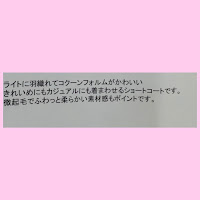 ライトに羽織れてコクーンフォルムがかわいい
きれいめにもカジュアルにも着まわせるショートコートです。
微起毛でふわっと柔らかい素材感もポイントです。